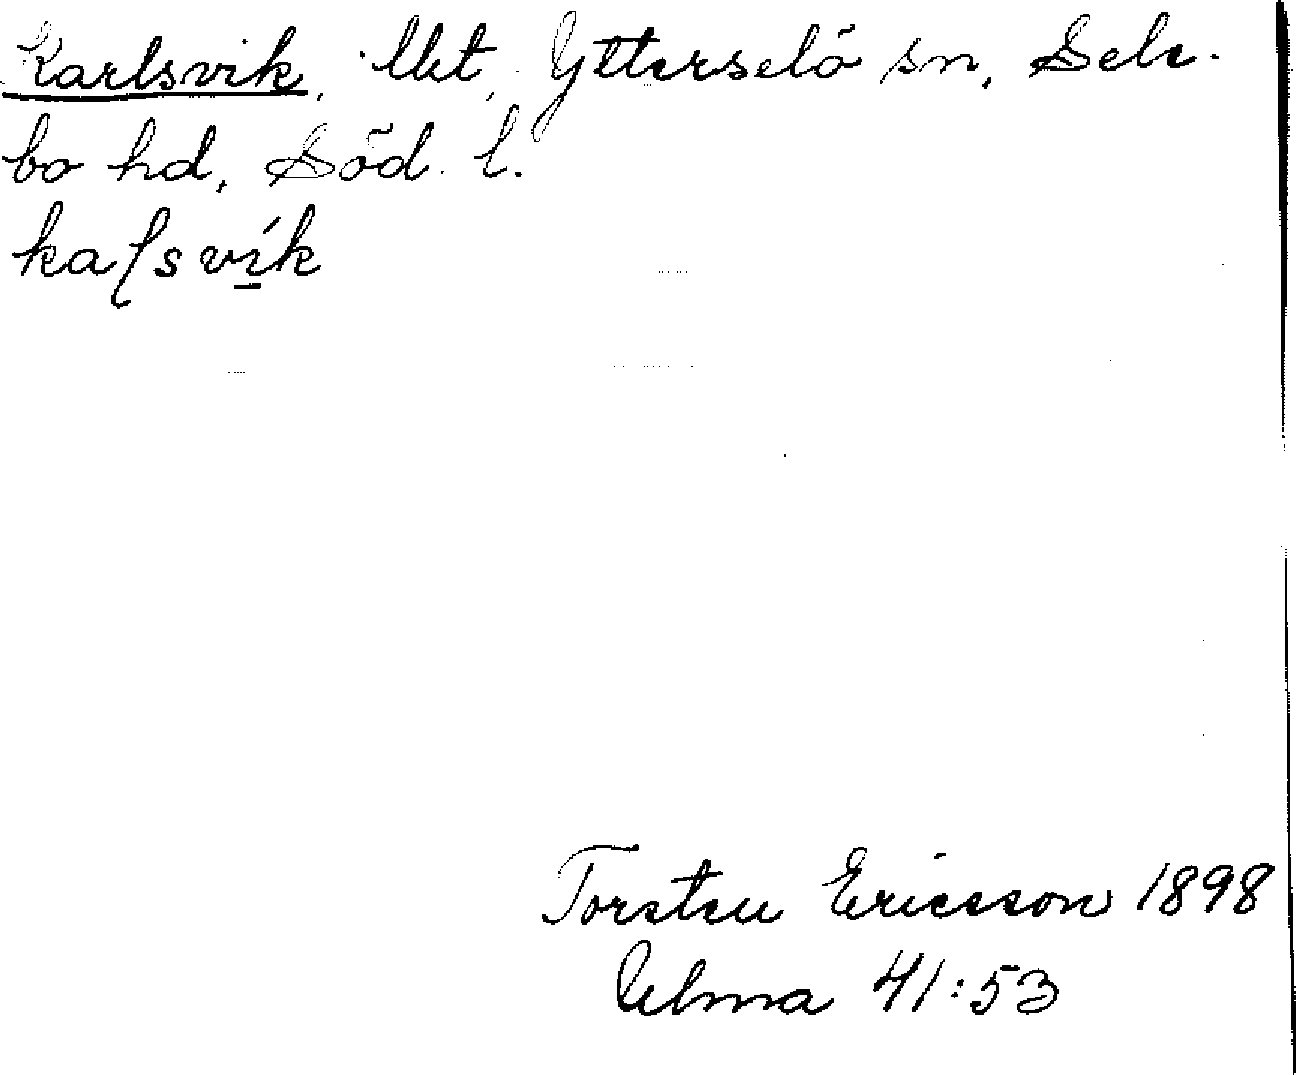 Karlsvik, Uet, Ytterselö sn, Sele-
bo hd, Söd. l.
kaʃsvík
Torsten Ericsson 1898
Ulma 41:53